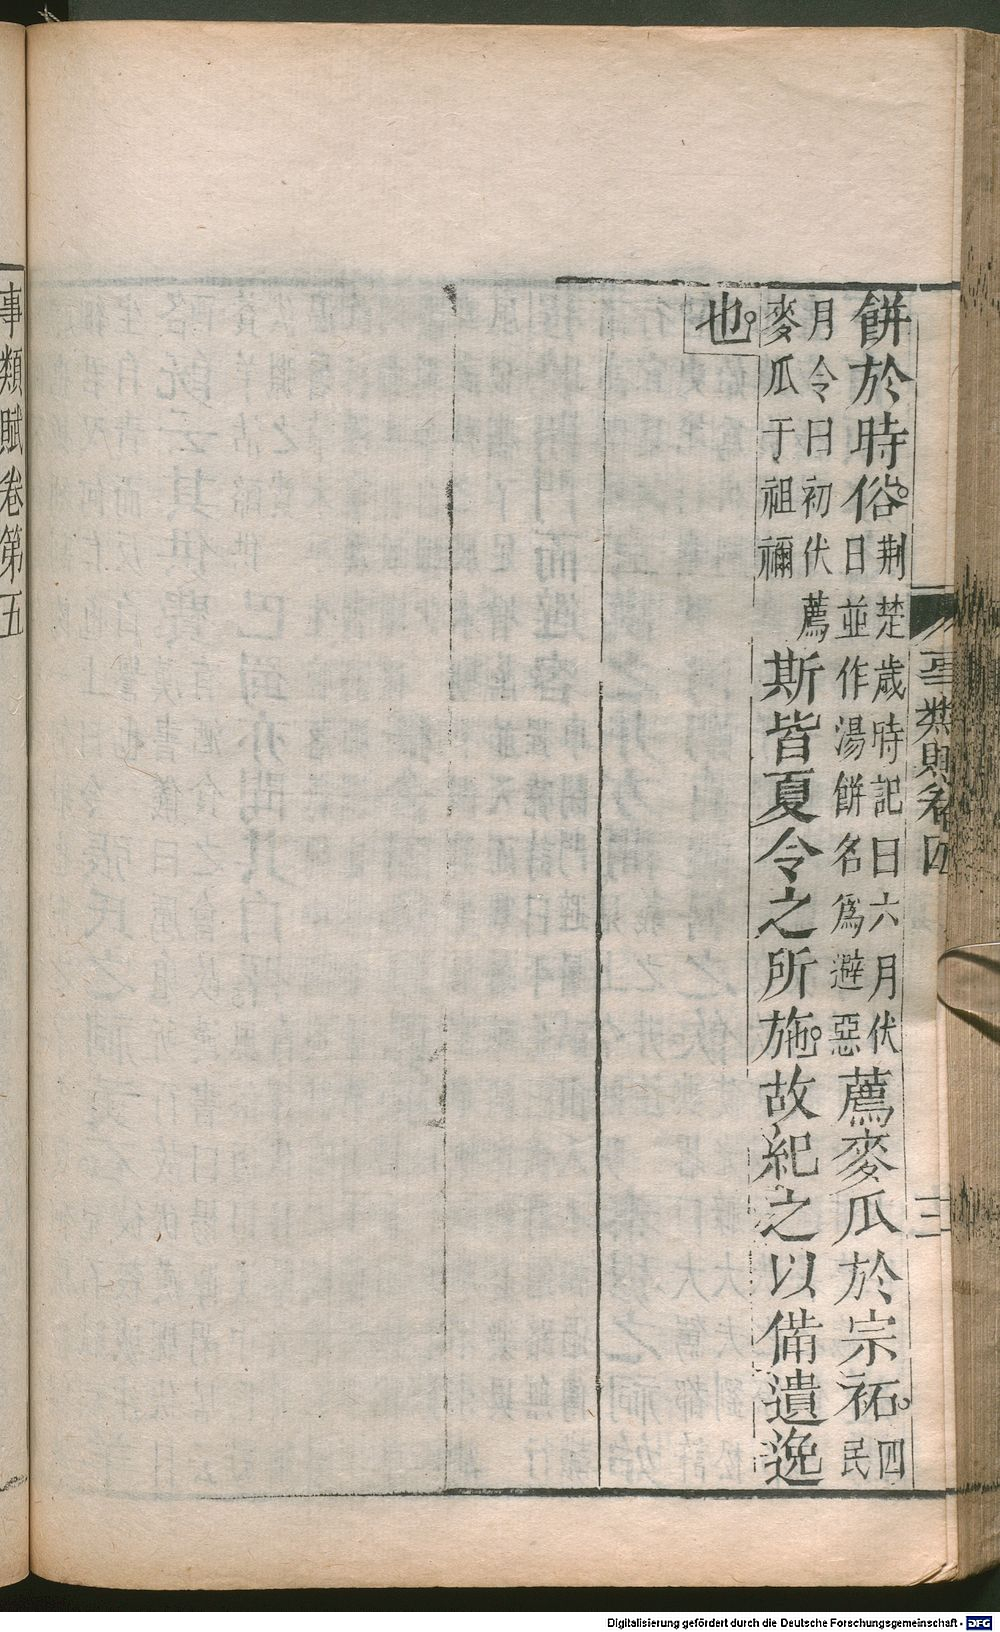 餅於時俗。荆楚歲時記曰六月伏
日並作湯餅名爲避惡薦麥瓜於宗祏。四民
月令曰初伏薦
麥瓜于祖禰斯皆夏令之所施。故紀之以備遺逸
也。
事類賦卷第五
Digitalisierung gefördert durch die Deutsche Forschungsgemeinschaft - DFG